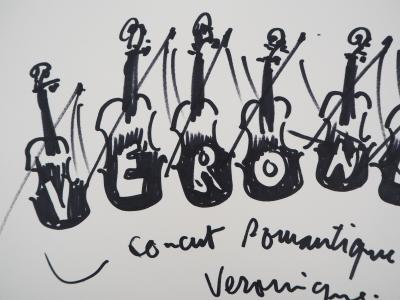 VERON
Concert Romantique
Veronique